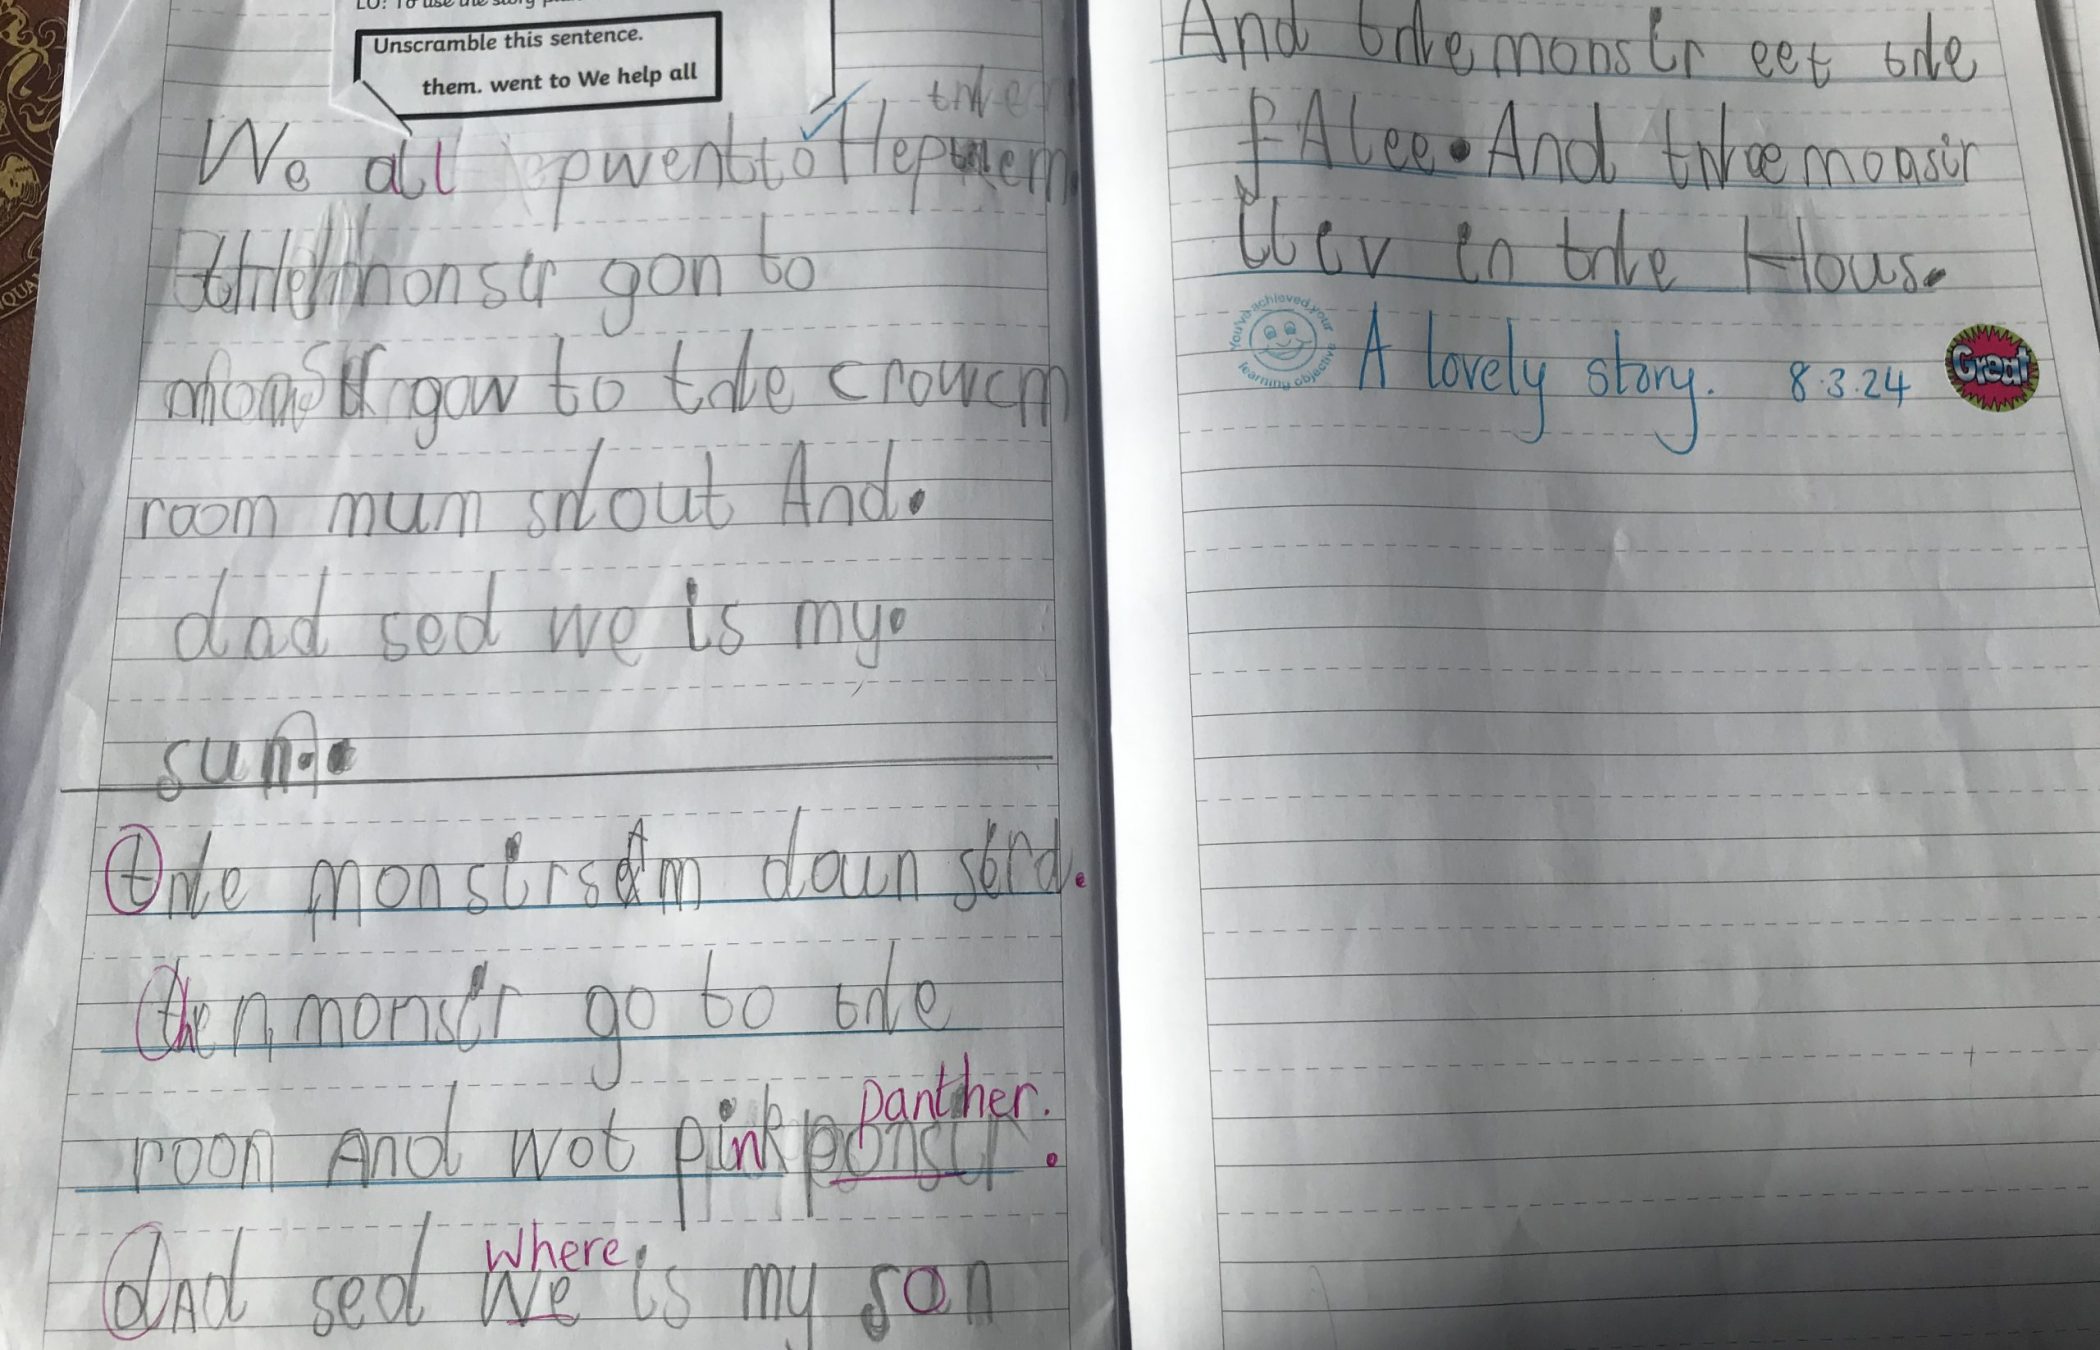 LO: To use the story
Unscramble this sentence.
them. went to We help all
the
We all went to Hep them
the monstr gon to
monstr gow to the crowcm
room mum shout And.
dad sed we is my.
sun.
the monstr sam doun serd.
then monstr go to the
panther.
roon And wot pink ponstr.
where
dAd sed we is my son
And the monstr eet the
fAlee. And the monstr
llev in the Hous.
You've achieved your learning objective
A lovely story. 8.3.24
Great